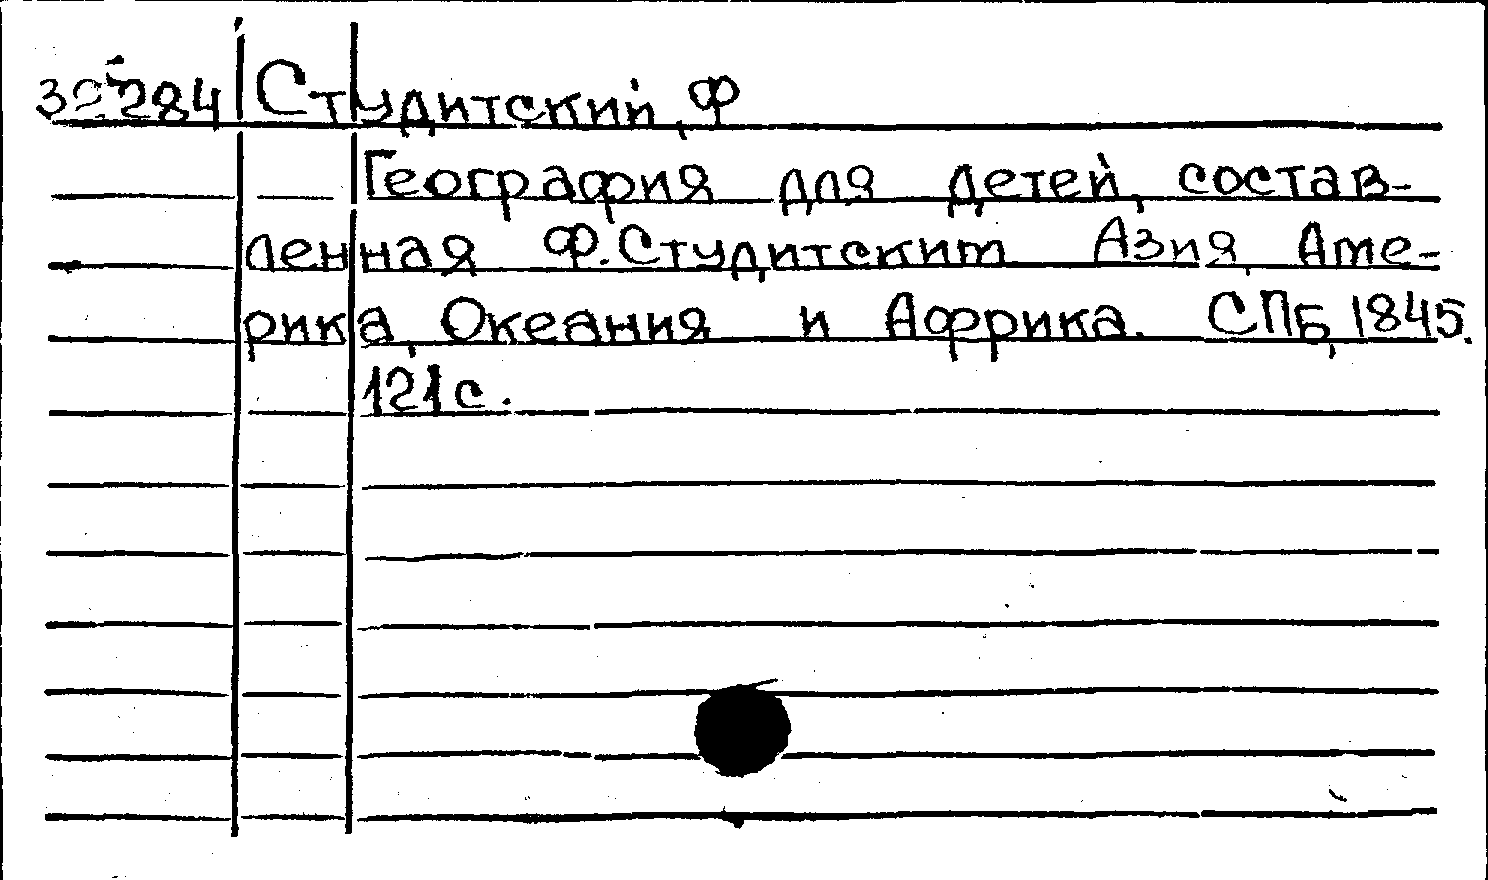 Студитский, Ф
География для детей, состав-
ленная Ф. Студитским Азия, Аме-
рика, Океания и Африка. СПб, 1845.
121 с.